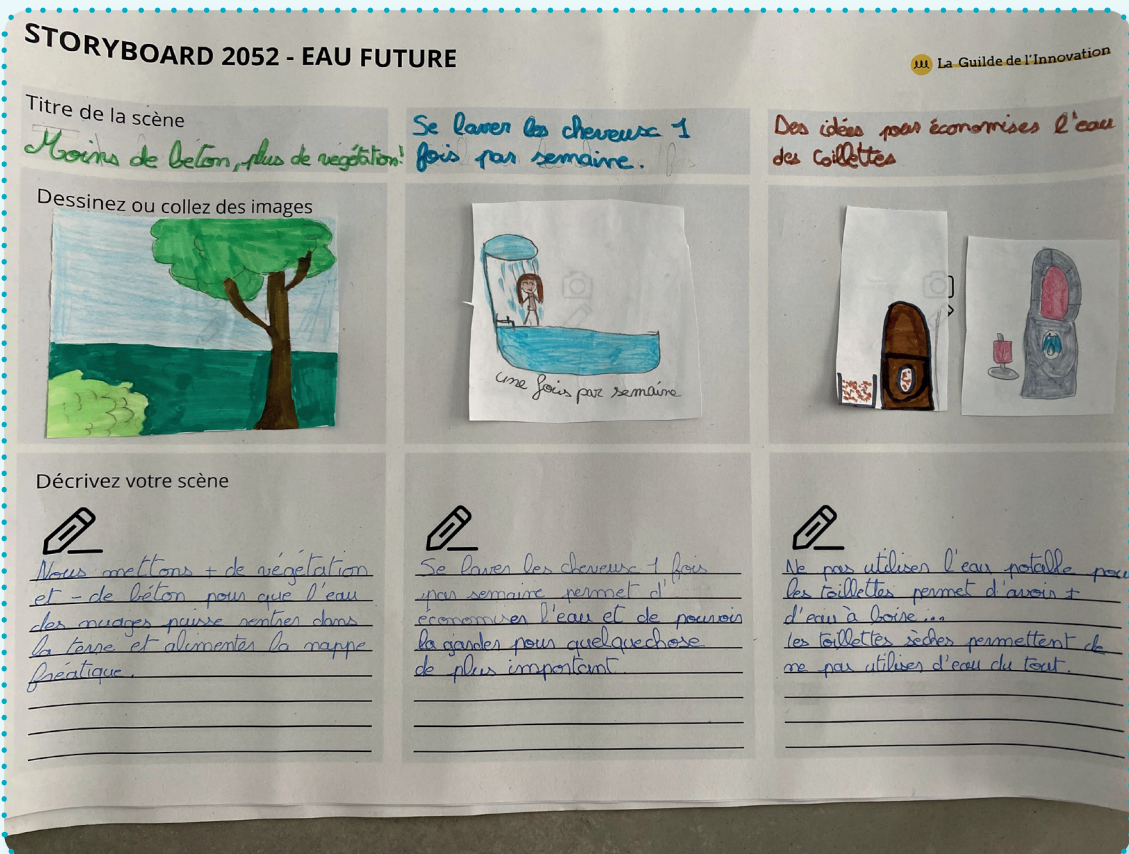 STORYBOARD 2052 - EAU FUTURE
La Guilde de l'Innovation
Titre de la scène
Moins de béton, plus de végétation!
Se laver les cheveux 1
fois par semaine.
Des idées pour économiser l'eau
des toillettes
Dessinez ou collez des images
une fois par semaine
Décrivez votre scène
Nous mettons + de végétation
et - de béton pour que l'eau
des nuages puisse rentrer dans
la terre et alimenter la nappe
fréatique.
Se laver les cheveux 1 fois
par semaine permet d'
économiser l'eau et de pouvoir
la garder pour quelquechose
de plus important.
Ne pas utiliser l'eau potalle pour
les toillettes permet d'avoir +
d'eau à boire...
les toillettes sèches permettent de
ne pas utiliser d'eau du tout.